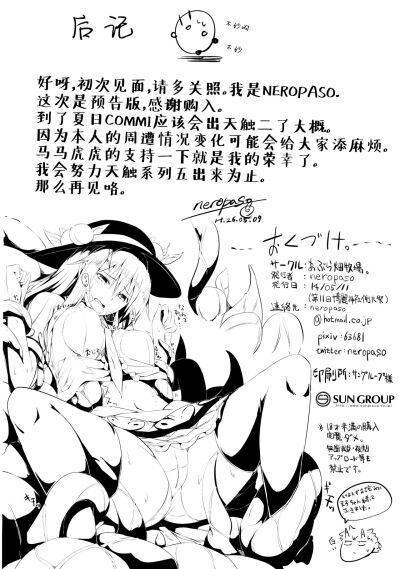 后记
不妙啊
不妙
好呀,初次见面,请多关照。我是NEROPASO.
这次是预告版,感谢购入。
到了夏日COMMI应该会出天触二了大概。
因为本人的周遭情况变化可能会给大家添麻烦。
马马虎虎的支持一下就是我的荣幸了。
我会努力天触系列五出来为止。
那么再见咯。
neropaso
おくづけ。
サークル:あぶら畑牧場。
発行者 : neropaso
発行日 : 14/05/11
(第11回博麗神社例大祭)
連絡先 : neropaso
@hotmail.co.jp
pixiv:63681
twitter:neropaso
印刷所:サングループ様
SUN GROUP
※18才未満の購入
閲覧ダメ。
無断転載・複製
アップロード等も
禁止です。